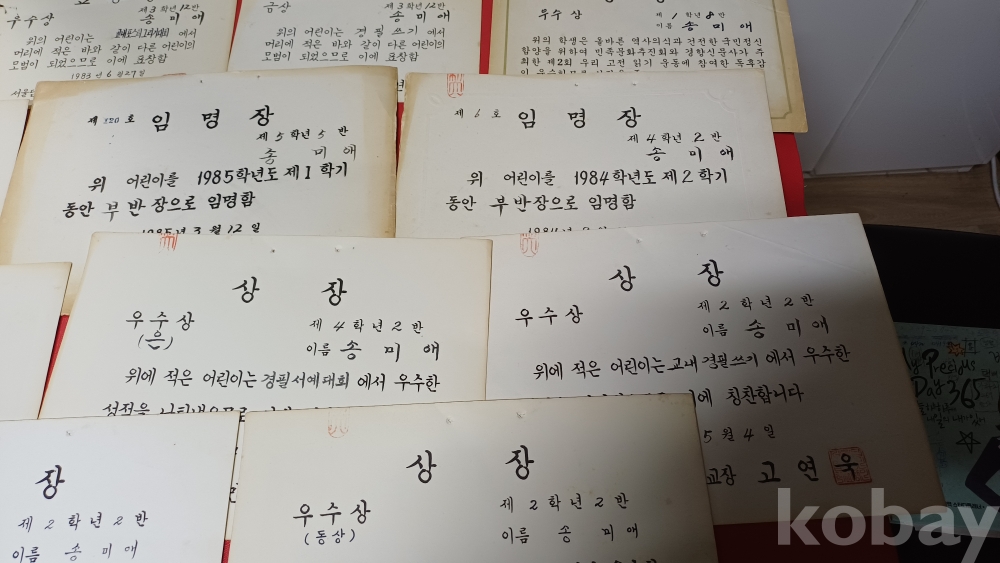 우수상
제3학년12반
송미애
위의 어린이는 에서
머리에 적은 바와 같이 다른 어린이의
모범이 되었으므로 이에 표창함
1983년 6월27일
금상
제3학년12반
송미애
위의 어린이는 경필쓰기에서
머리에 적은 바와 같이 다른 어린이의
모범이 되었으므로 이에 표창함
우수상
제1학년8반
이름 송미애
위의 학생은 올바른 역사의식과 건전한 국민정신
함양을 위하여 민족문화추진회와 경향신문사가 주
최한 제2회 우리 고전 읽기 운동에 참여한 독후감
제120호 임명장
제5학년5반
송미애
위 어린이를 1985학년도 제1학기
동안 부반장으로 임명함
1985년 3월 12일
제6호 임명장
제4학년2반
송미애
위 어린이를 1984학년도 제2학기
동안 부반장으로 임명함
상장
우수상
(은)
제4학년2반
이름 송미애
위에 적은 어린이는 경필서예대회에서 우수한
성적을
상장
우수상
제2학년2반
이름 송미애
위에 적은 어린이는 교내 경필쓰기에서 우수한
이에 칭찬합니다
5월 4일
교장 고연욱
장
제2학년2반
이름 송미애
상장
우수상
(동상)
제2학년2반
이름 송미애
Day 365
kobay